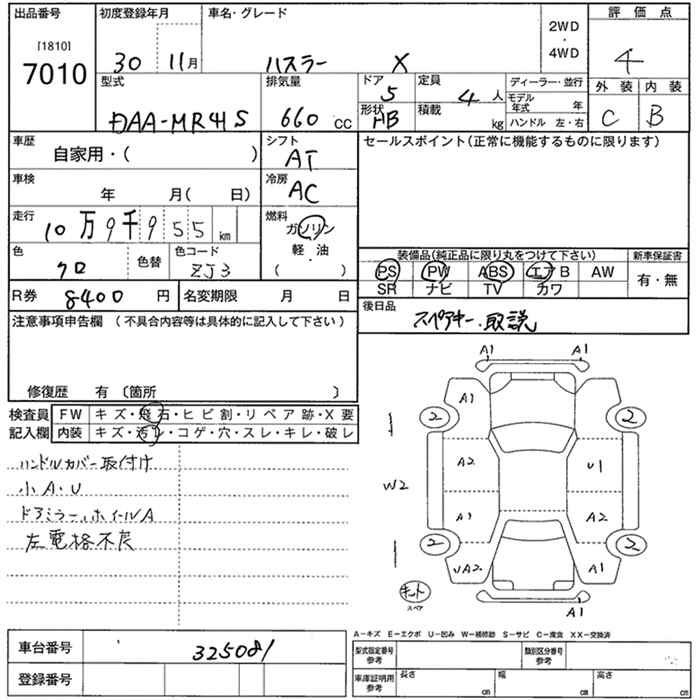 出品番号 初度登録年月 車名・グレード 2WD・4WD 評価点
[1810]
7010 30 11月 ハスラー X 4
型式 排気量 ドア 定員 ディーラー・並行 外装 内装
DAA-MR41S 660 CC 5 4人 モデル年式 年 C B
形状 積載
HB kg ハンドル 左・右
車歴 シフト セールスポイント(正常に機能するものに限ります)
自家用・( ) AT
車検 冷房
年 月( 日) AC
走行 燃料
10万9千955km ガソリン
軽・油
( )
色 色替 色コード
クロ ZJ3
装備品(純正品に限り丸をつけて下さい) 新車保証書
PS PW ABS エアB AW 有・無
SR ナビ TV カワ
R券 8400円 名変期限 月 日
後日品 スペアキー・取説
注意事項申告欄 (不具合内容等は具体的に記入して下さい)
修復歴 有〔箇所 〕
検査員記入欄
FW キズ・飛石・ヒビ割・リペア跡・X要
内装 キズ・汚レ・コゲ・穴・スレ・キレ・破レ
ハンドルカバー取付け
小A・U
ドアミラー、ホイールA
左電格不良
A1 A1
A1
2 2
A2 U1
W2
A1 A2
2 2
UA2 A1
キット
スペア
A1
A-キズ E-エクボ U-凹み W-補修跡 S-サビ C-腐食 XX-交換済
車台番号 325081
登録番号
型式指定番号 参考 類別区分番号 参考
車庫証明用 参考 長さ cm 幅 cm 高さ cm